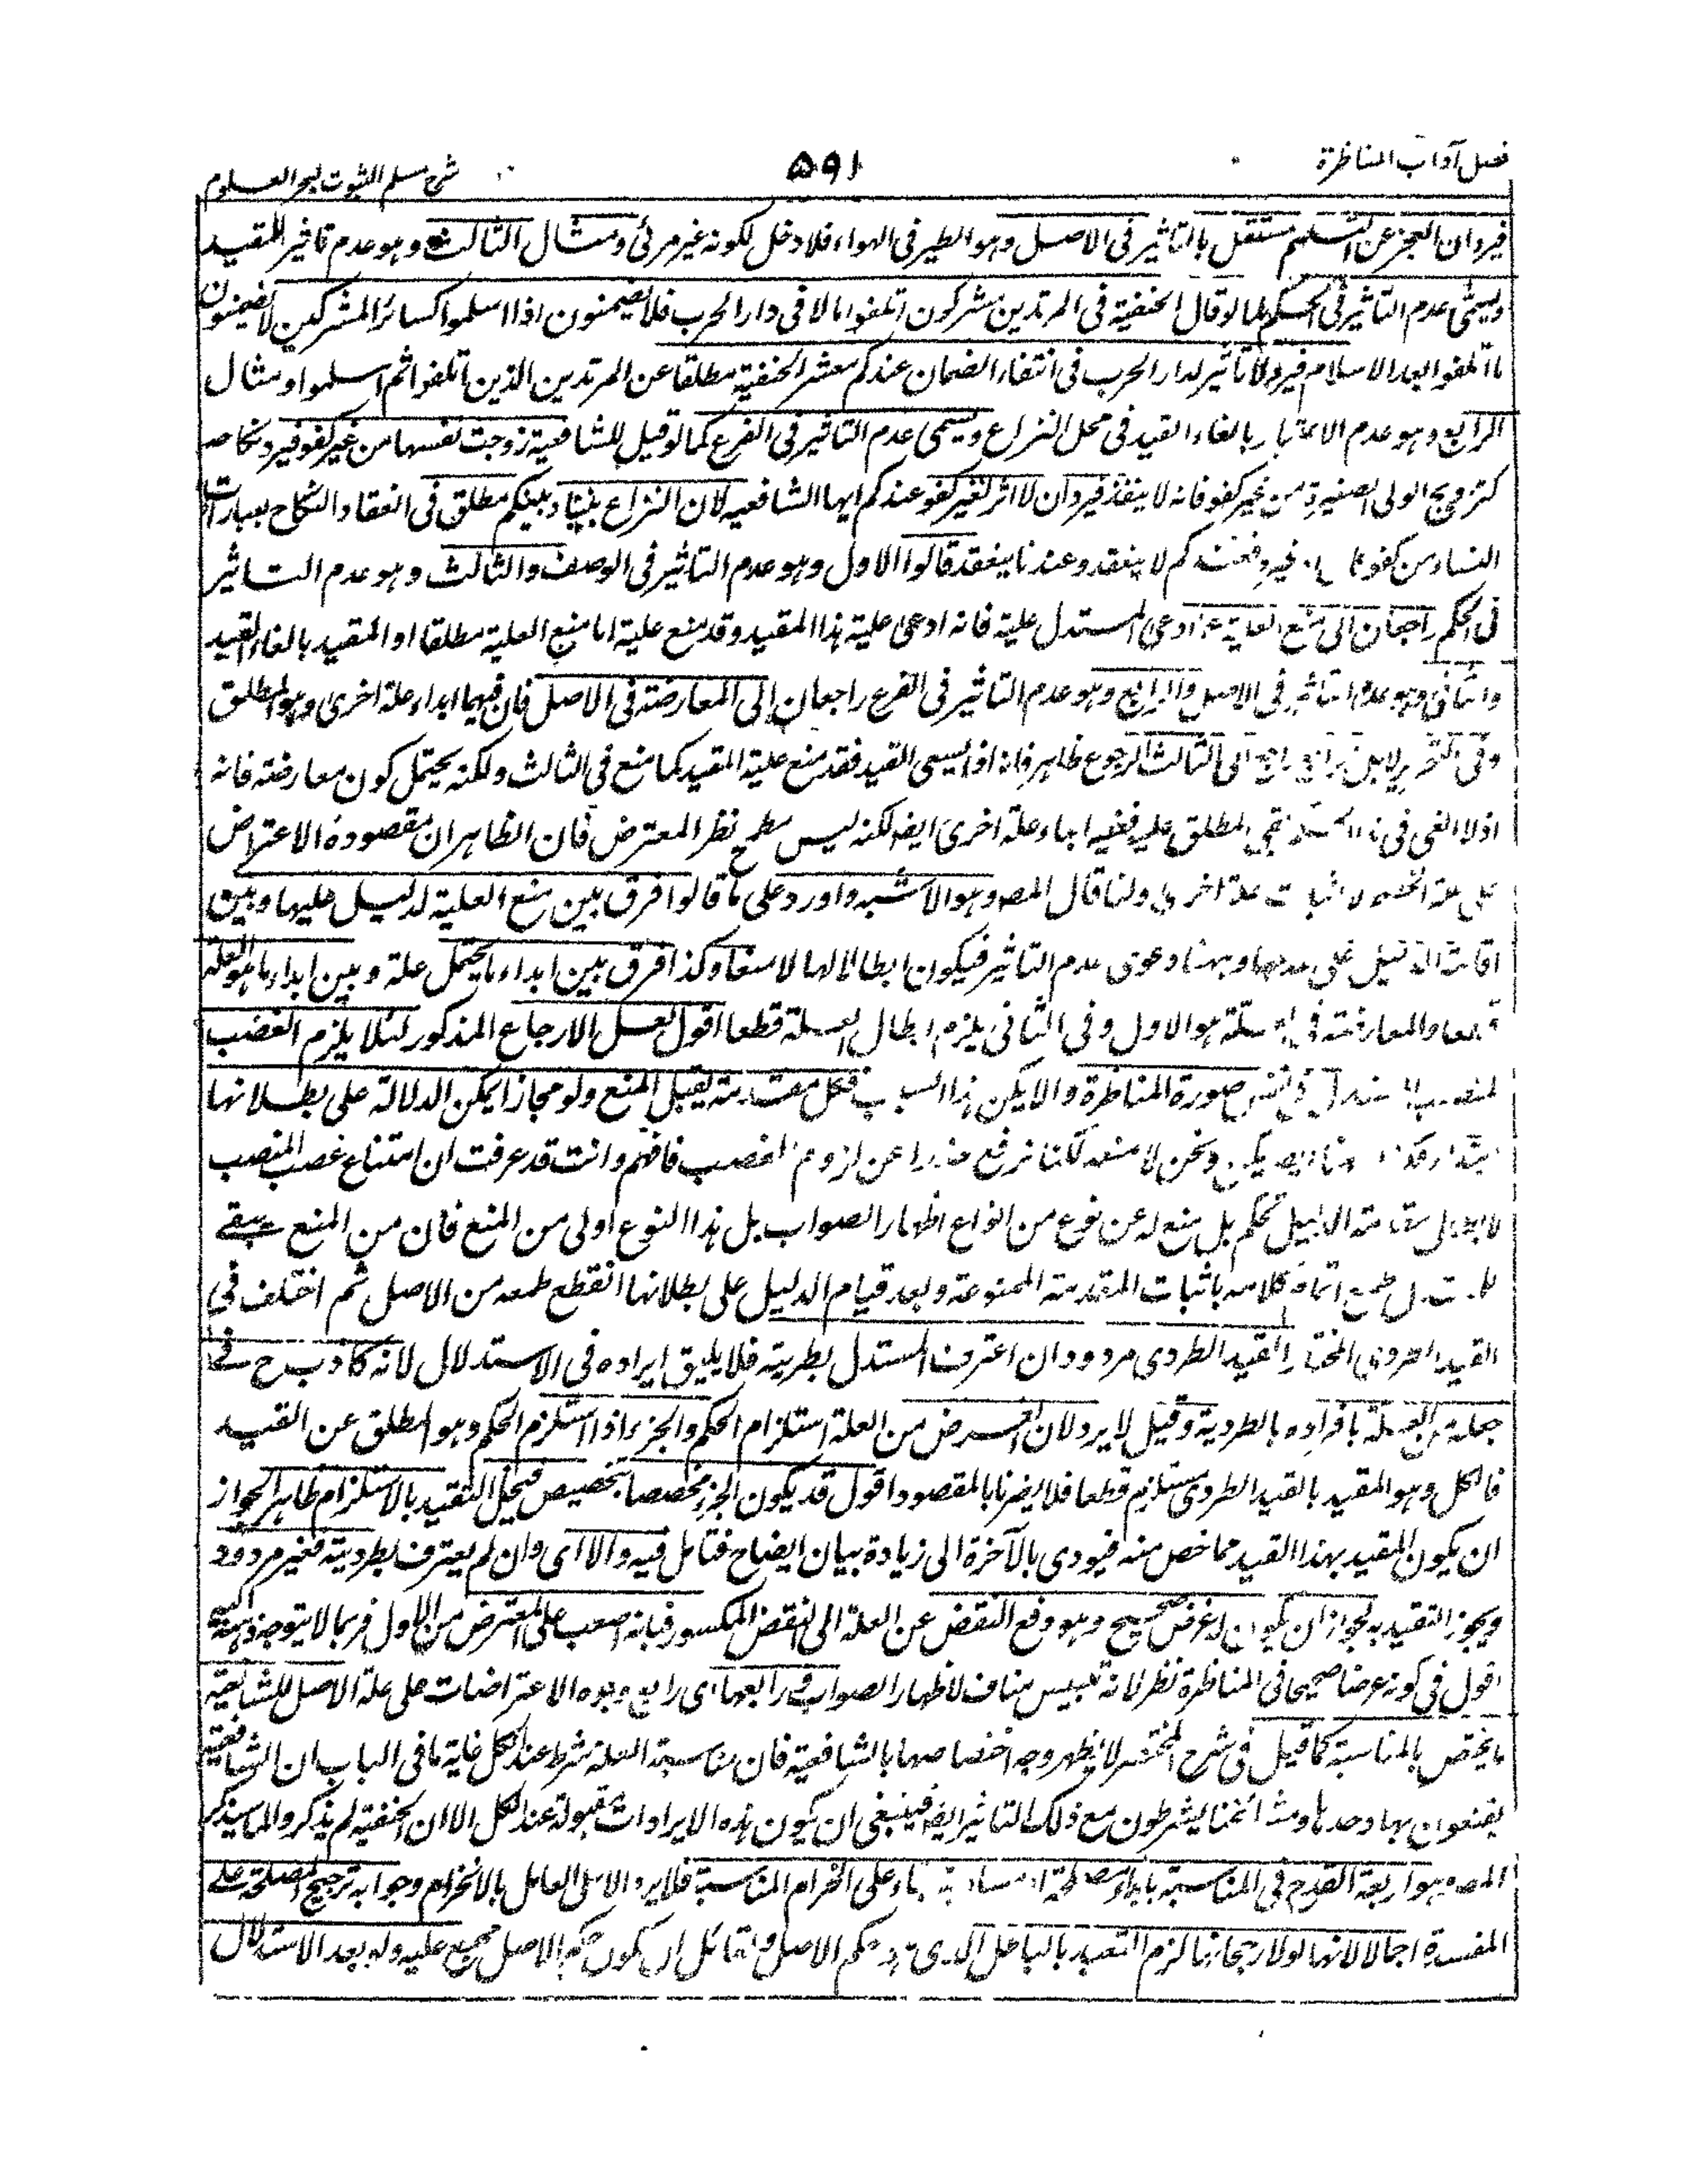 فصل آداب المناظرة
٥٩١
شرح مسلم الثبوت لبحر العلوم
فيرد ان العجز عن التسليم مستقل بالتاثير فى الاصل وهو الطير فى الهواء فلا دخل لكونه غير مرئى ومثال الثالث وهو عدم تاثير للمقيد
ويسمى عدم التاثير فى الحكم كما لو قال الحنفية فى المرتدين مشركون اتلفوا مالا فى دار الحرب فلا يضمنون اذا اسلموا كسائر المشركين لا يضمنون
ما اتلفوا بعد الاسلام فيرد لا تاثير لدار الحرب فى انتفاء الضمان عندكم معشر الحنفية مطلقا عن المرتدين الذين اتلفوا ثم اسلموا ومثال
الرابع وهو عدم الاعتبار بالغاء القيد فى محل النزاع ويسمى عدم التاثير فى الفرع كما لو قيل للشافعية زوجت نفسها من غير كفو فيرد نكاحه
كتزويج الولى الصغيرة من غير كفو فانه لا ينفذ فيرد ان لا اثر لغير كفو عندكم ايها الشافعية لان النزاع بيننا وبينكم مطلق فى انعقاد النكاح بعبارات
النساء من كفو فعندكم لا ينعقد وعندنا ينعقد قالوا الاول وهو عدم التاثير فى الوصف والثالث وهو عدم التاثير
فى الحكم راجعان الى منع العلية ادعى المستدل علية فانه ادعى علية هذا المقيد وقد منع علية اما منع العلية مطلقا او المقيد بالغاء القيد
والثانى وهو عدم التاثير فى الاصل والرابع وهو عدم التاثير فى الفرع راجعان الى المعارضة فى الاصل فان فيهما ابداء علة اخرى وهو المطلق
وفى التحرير لا بل الرابع راجع الى الثالث الرجوع ظاهر فانه اذا القيد فقد منع علية المقيد كما منع فى الثالث ولكنه يحتمل كون معارضته فانه
اذ لا الغى المطلق عليه ففيه ابداء علة اخرى ايضا لكنه ليس مطمح نظر المعترض فان الظاهر ان مقصوده الاعتراض
على علة الخصم لا اثبات علة اخرى ولذا قال المصـ وهو الاشبه واورد على ما قالوا فرق بين منع العلية لدليل عليها وبين
اقامة الدليل على عدمها وههنا دعوى عدم التاثير فيكون ابطالا لها لا منعا وكذا فرق بين ابداء ما يحتمل علة وبين ابداء ما هو العلة
قطعا والمعارضة فى هو الاول وفى الثانى يلزم ابطال العلة قطعا اقول لعل الارجاع المذكور لئلا يلزم الغصب
لمنصب فى نفس صورة المناظرة والا يكن هذا السبب فكل مقدمة يقبل المنع ولو مجازا يمكن الدلالة على بطلانها
ونحن لا نمنعه لكنا نرفع عن لزوم الغصب فافهم وانت قد عرفت ان امتناع غصب المنصب
تحكم بل منع له عن نوع من انواع اظهار الصواب بل هذا النوع اولى من المنع فان من المنع يبقى
طمع اتمام كلامه باثبات المقدمة الممنوعة وبعد قيام الدليل على بطلانها انقطع طمعه من الاصل ثم اختلف فى
القيد الطردى المختار القيد الطردى مردود ان اعترف المستدل بطرديته فلا يليق ايراده فى الاستدلال لانه كاذب ح فى
جعله العلة باقراره بالطردية وقيل لا يرد لان الغرض من العلة استلزام الحكم والجزء اذا استلزم الحكم وهو المطلق عن القيد
فالكل وهو المقيد بالقيد الطردى مستلزم قطعا فلا يضرنا بالمقصود اقول قد يكون الجزء مخصصا بتخصيص فيجعل التقييد بالاستلزام ظاهر الجواز
ان يكون المقيد بهذا القيد مما خص منه فيودى بالآخرة الى زيادة بيان ايضاح فتامل فيه والا اى وان لم يعترف بطرديته فغير مردود
ويجوز التقييد به لجواز ان يكون له غرض صحيح وهو دفع النقض عن العلة الى النقض المكسور فانه اصعب على المعترض من الاول فربما لا يتوجه ذهنه اليه
اقول فى كونه غرضا صحيحا فى المناظرة نظر لانه تلبيس مناف لاظهار الصواب رابعها اى رابع وجوه الاعتراضات على علة الاصل للشافعية
ما يختص بالمناسبة كما قيل فى شرح المختصر لا يظهر وجه اختصاصها بالشافعية فان مناسبة العلة شرط عند الكل غاية ما فى الباب ان الشافعية
يقنعون بها وحدها ومشائخنا يشرطون مع ذلك التاثير ايضا فينبغى ان يكون هذه الايرادات مقبولة عند الكل الا ان الحنفية لم يذكروا لما سيذكر
المصـ وهو اربعة القدح فى المناسبة بابداء مفسدة بناء على انخرام المناسبة فلا يرد الا على العامل بالانخرام وجوابه ترجيح المصلحة على
المفسدة اجمالا لانها لولا رجحانها لزم التعبد بالباطل حكم الاصل حكم الاصل مجمع عليه وله بعد الاستدلال